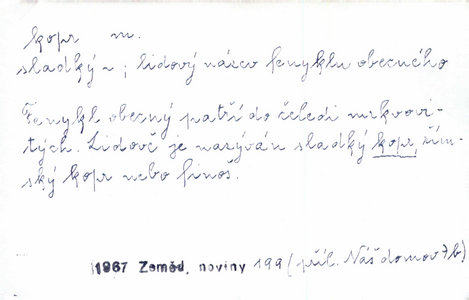 kopr m.
sladký ~ ; lidový název fenyklu obecného
Fenykl obecný patří do čeledi mrkvovi-
tých. Lidově je nazýván sladký kopr, řím-
ský kopr nebo finoš.
1967 Zeměd. noviny 199 (příl. Náš domov 7b)